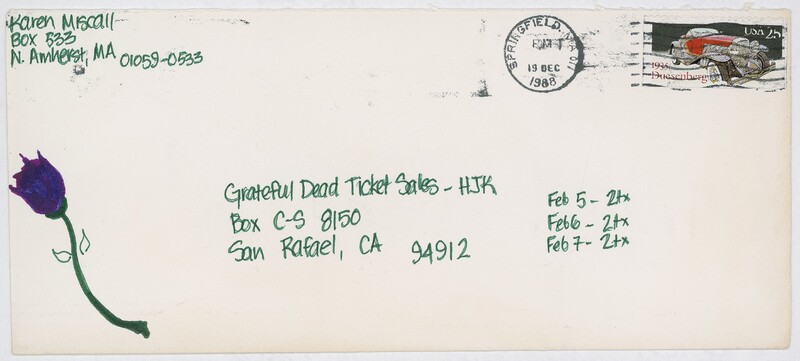 Karen Miscall
Box 533
N. Amherst, MA 01059-0533
SPRINGFIELD, MA 011
PM
19 DEC
1988
USA 25
1935
Duesenberg
Grateful Dead Ticket Sales - HJK
Box C-S 8150
San Rafael, CA 94912
Feb 5 - 2tx
Feb 6 - 2tx
Feb 7 - 2tx